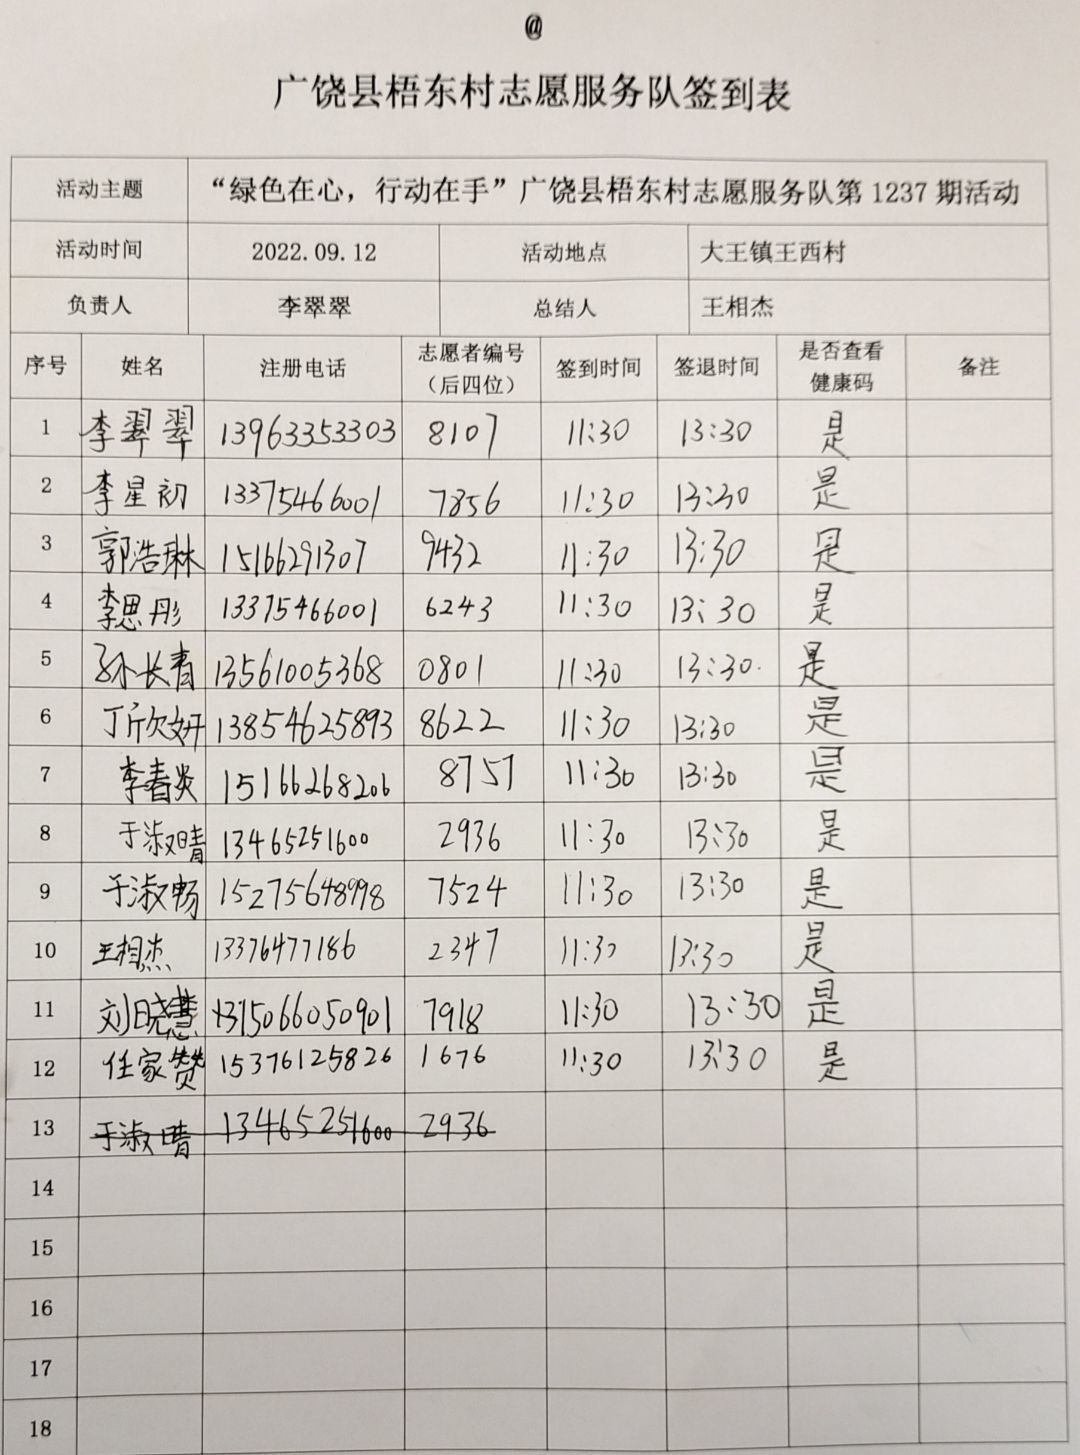 @
广饶县梧东村志愿服务队签到表
活动主题 “绿色在心，行动在手”广饶县梧东村志愿服务队第 1237 期活动
活动时间 2022.09.12 活动地点 大王镇王西村
负责人 李翠翠 总结人 王相杰
序号 姓名 注册电话 志愿者编号（后四位） 签到时间 签退时间 是否查看健康码 备注
1 李翠翠 13963353303 8107 11:30 13:30 是
2 李星初 13375466001 7856 11:30 13:30 是
3 郭浩琳 15166291307 9432 11:30 13:30 是
4 李思彤 13375466001 6243 11:30 13:30 是
5 孙长青 13561005368 0801 11:30 13:30 是
6 丁欣妍 13854625893 8622 11:30 13:30 是
7 李春炎 15166268206 8757 11:30 13:30 是
8 于淑晴 13465251600 2936 11:30 13:30 是
9 于淑畅 15275648998 7524 11:30 13:30 是
10 王相杰 13376477186 2347 11:30 13:30 是
11 刘晓慧 15066050901 7918 11:30 13:30 是
12 任家赞 15376125826 1676 11:30 13:30 是
13 于淑晴 13465251600 2936
14
15
16
17
18